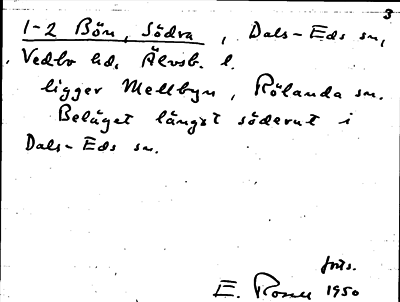 3
1-2 Bön, Södra, Dals-Eds sn,
Vedbo hd. Älvsb. l.
ligger Mellbyn, Rölanda sn.
Beläget längst söderut i
Dals-Eds sn.
forts.
E. Rosell 1950